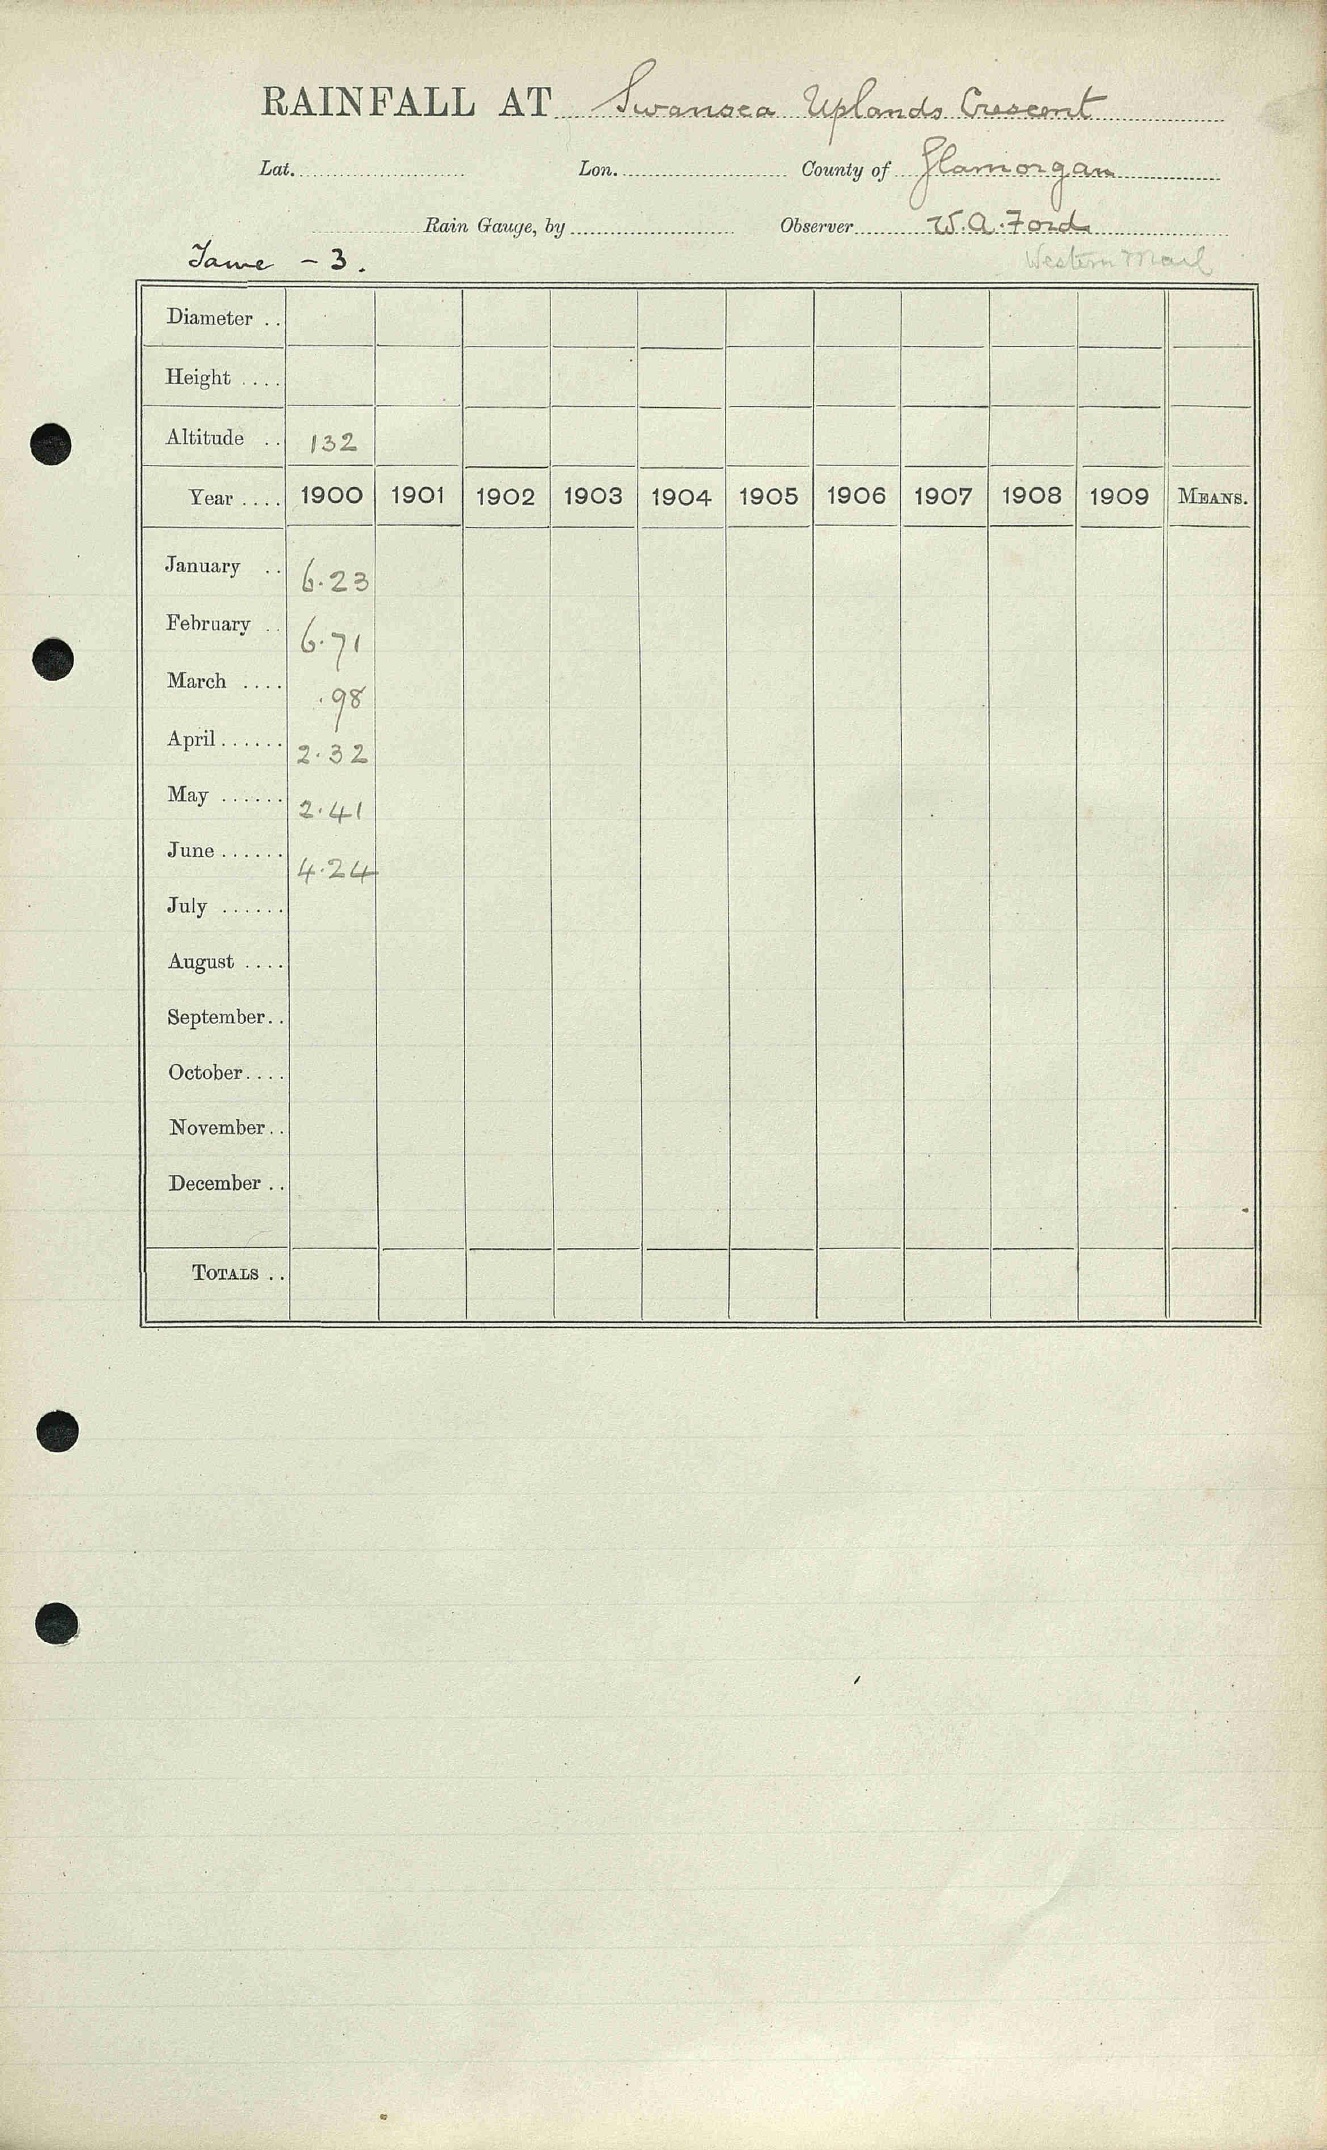 RAINFALL AT Swansea Uplands Crescent
Lat. Lon. County of Glamorgan
Rain Gauge, by Observer W.A. Ford
Tawe - 3. Western Mail
Diameter ..
Height ....
Altitude .. 132
Year .... 1900 1901 1902 1903 1904 1905 1906 1907 1908 1909 MEANS.
January .. 6.23
February .. 6.71
March .... .98
April ...... 2.32
May ...... 2.41
June ...... 4.24
July ......
August ....
September..
October....
November..
December ..
TOTALS ..